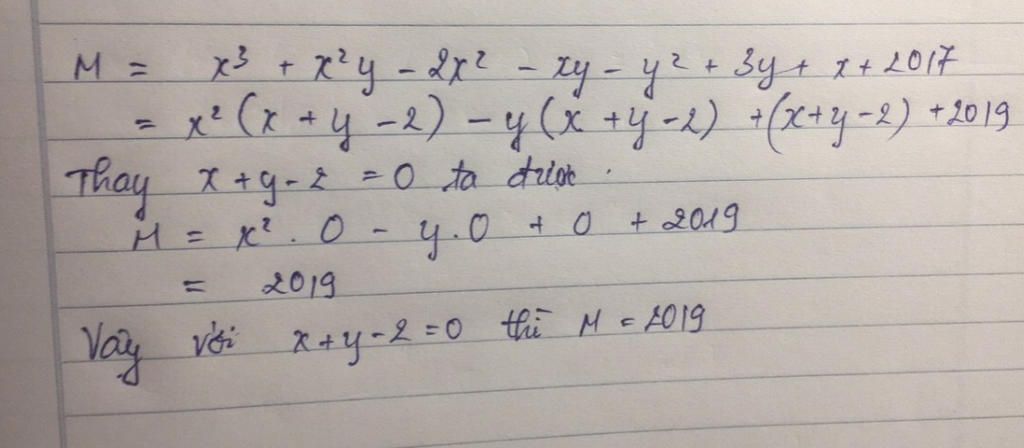 M = x³ + x²y - 2x² - xy - y² + 3y + x + 2017
= x² (x + y - 2) - y (x + y - 2) + (x + y - 2) + 2019
Thay x + y - 2 = 0 ta được .
M = x² . 0 - y . 0 + 0 + 2019
= 2019
Vậy với x + y - 2 = 0 thì M = 2019